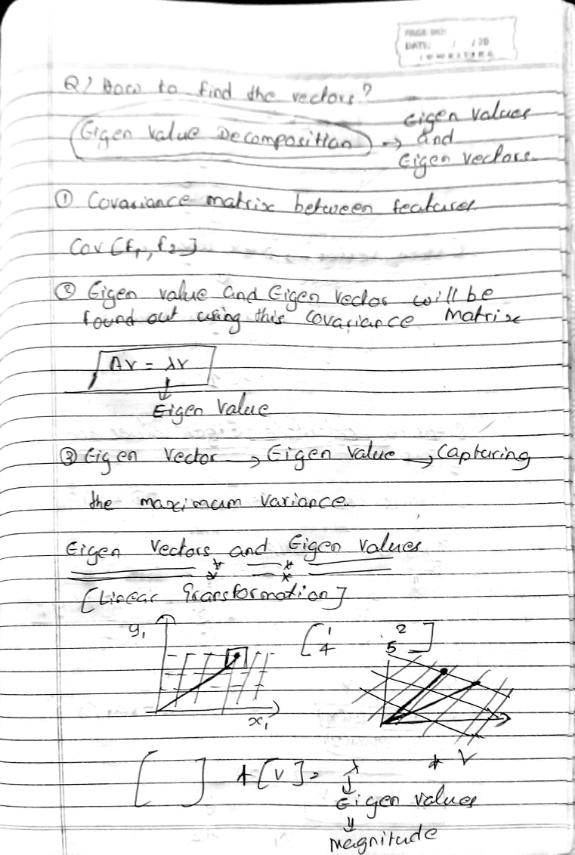 PAGE NO:
DATE: / /20
Q) How to find the vectors?
Eigen Value Decomposition → Eigen values and Eigen vectors.
① Covariance matrix between features
Cov [f1, f2]
② Eigen value and Eigen Vector will be
found out using this covariance Matrix
Av = λv
Eigen Value
③ Eigen Vector → Eigen Value → Capturing
the maximum variance.
Eigen Vectors and Eigen values
[Linear Transformation]
y1
x1
[1 2
4 5]
[ ] * [v] = λ * v
Eigen values
Magnitude